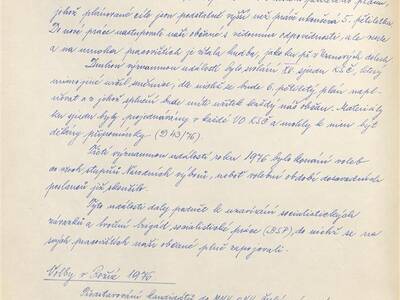 jehož plánované cíle jsou podstatně vyšší než právě ukončená 5. pětiletka
Do nové práce nastupovali naši občané s vědomím odpovědnosti, ale
a na mnoha pracovištích je vítala hudba, jako ku př. v
Druhou významnou událostí bylo svolání XV. sjezdu KSČ, který
směrnice, dle nichž se bude 6. pětiletý plán napl-
ňovat a z jehož splnění bude mít užitek každý náš občan. Materiály
ku sjezdu byly projednávány v každé VO KSČ a mohly k nim být
dělány připomínky (D 43/76).
Třetí významnou událostí roku 1976 bylo konání voleb
do všech stupňů Národních výborů, neboť volební období dosavadních
poslanců již skončilo.
Tyto události daly podnět k uzavírání socialistických
závazků a tvoření brigád socialistické práce (BSP), do nichž se na
svých pracovištích naši občané plně zapojovali.
Volby v 1976
kandidátů do MNV, ONV